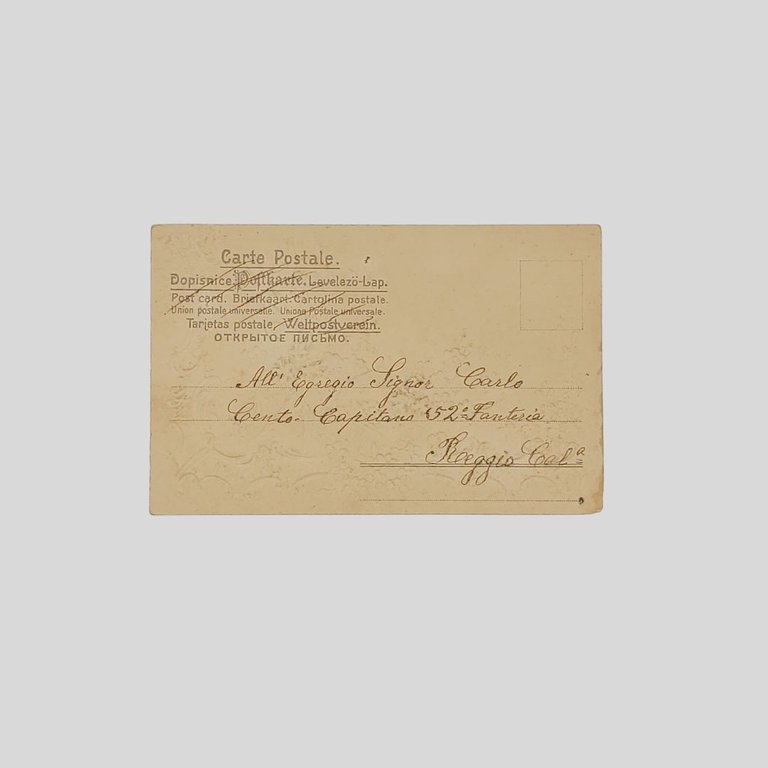 Carte Postale.
Dopisnice. Postkarte. Levelezö-Lap.
Post card. Briefkaart. Cartolina postale.
Union postale universelle. Uniono Postale universale.
Tarjetas postale, Weltpostverein.
ОТКРЫТОЕ ПИСЬМО.
All' Egregio Signor Carlo
Cento- Capitano 52º Fanteria
Reggio Cal.ª